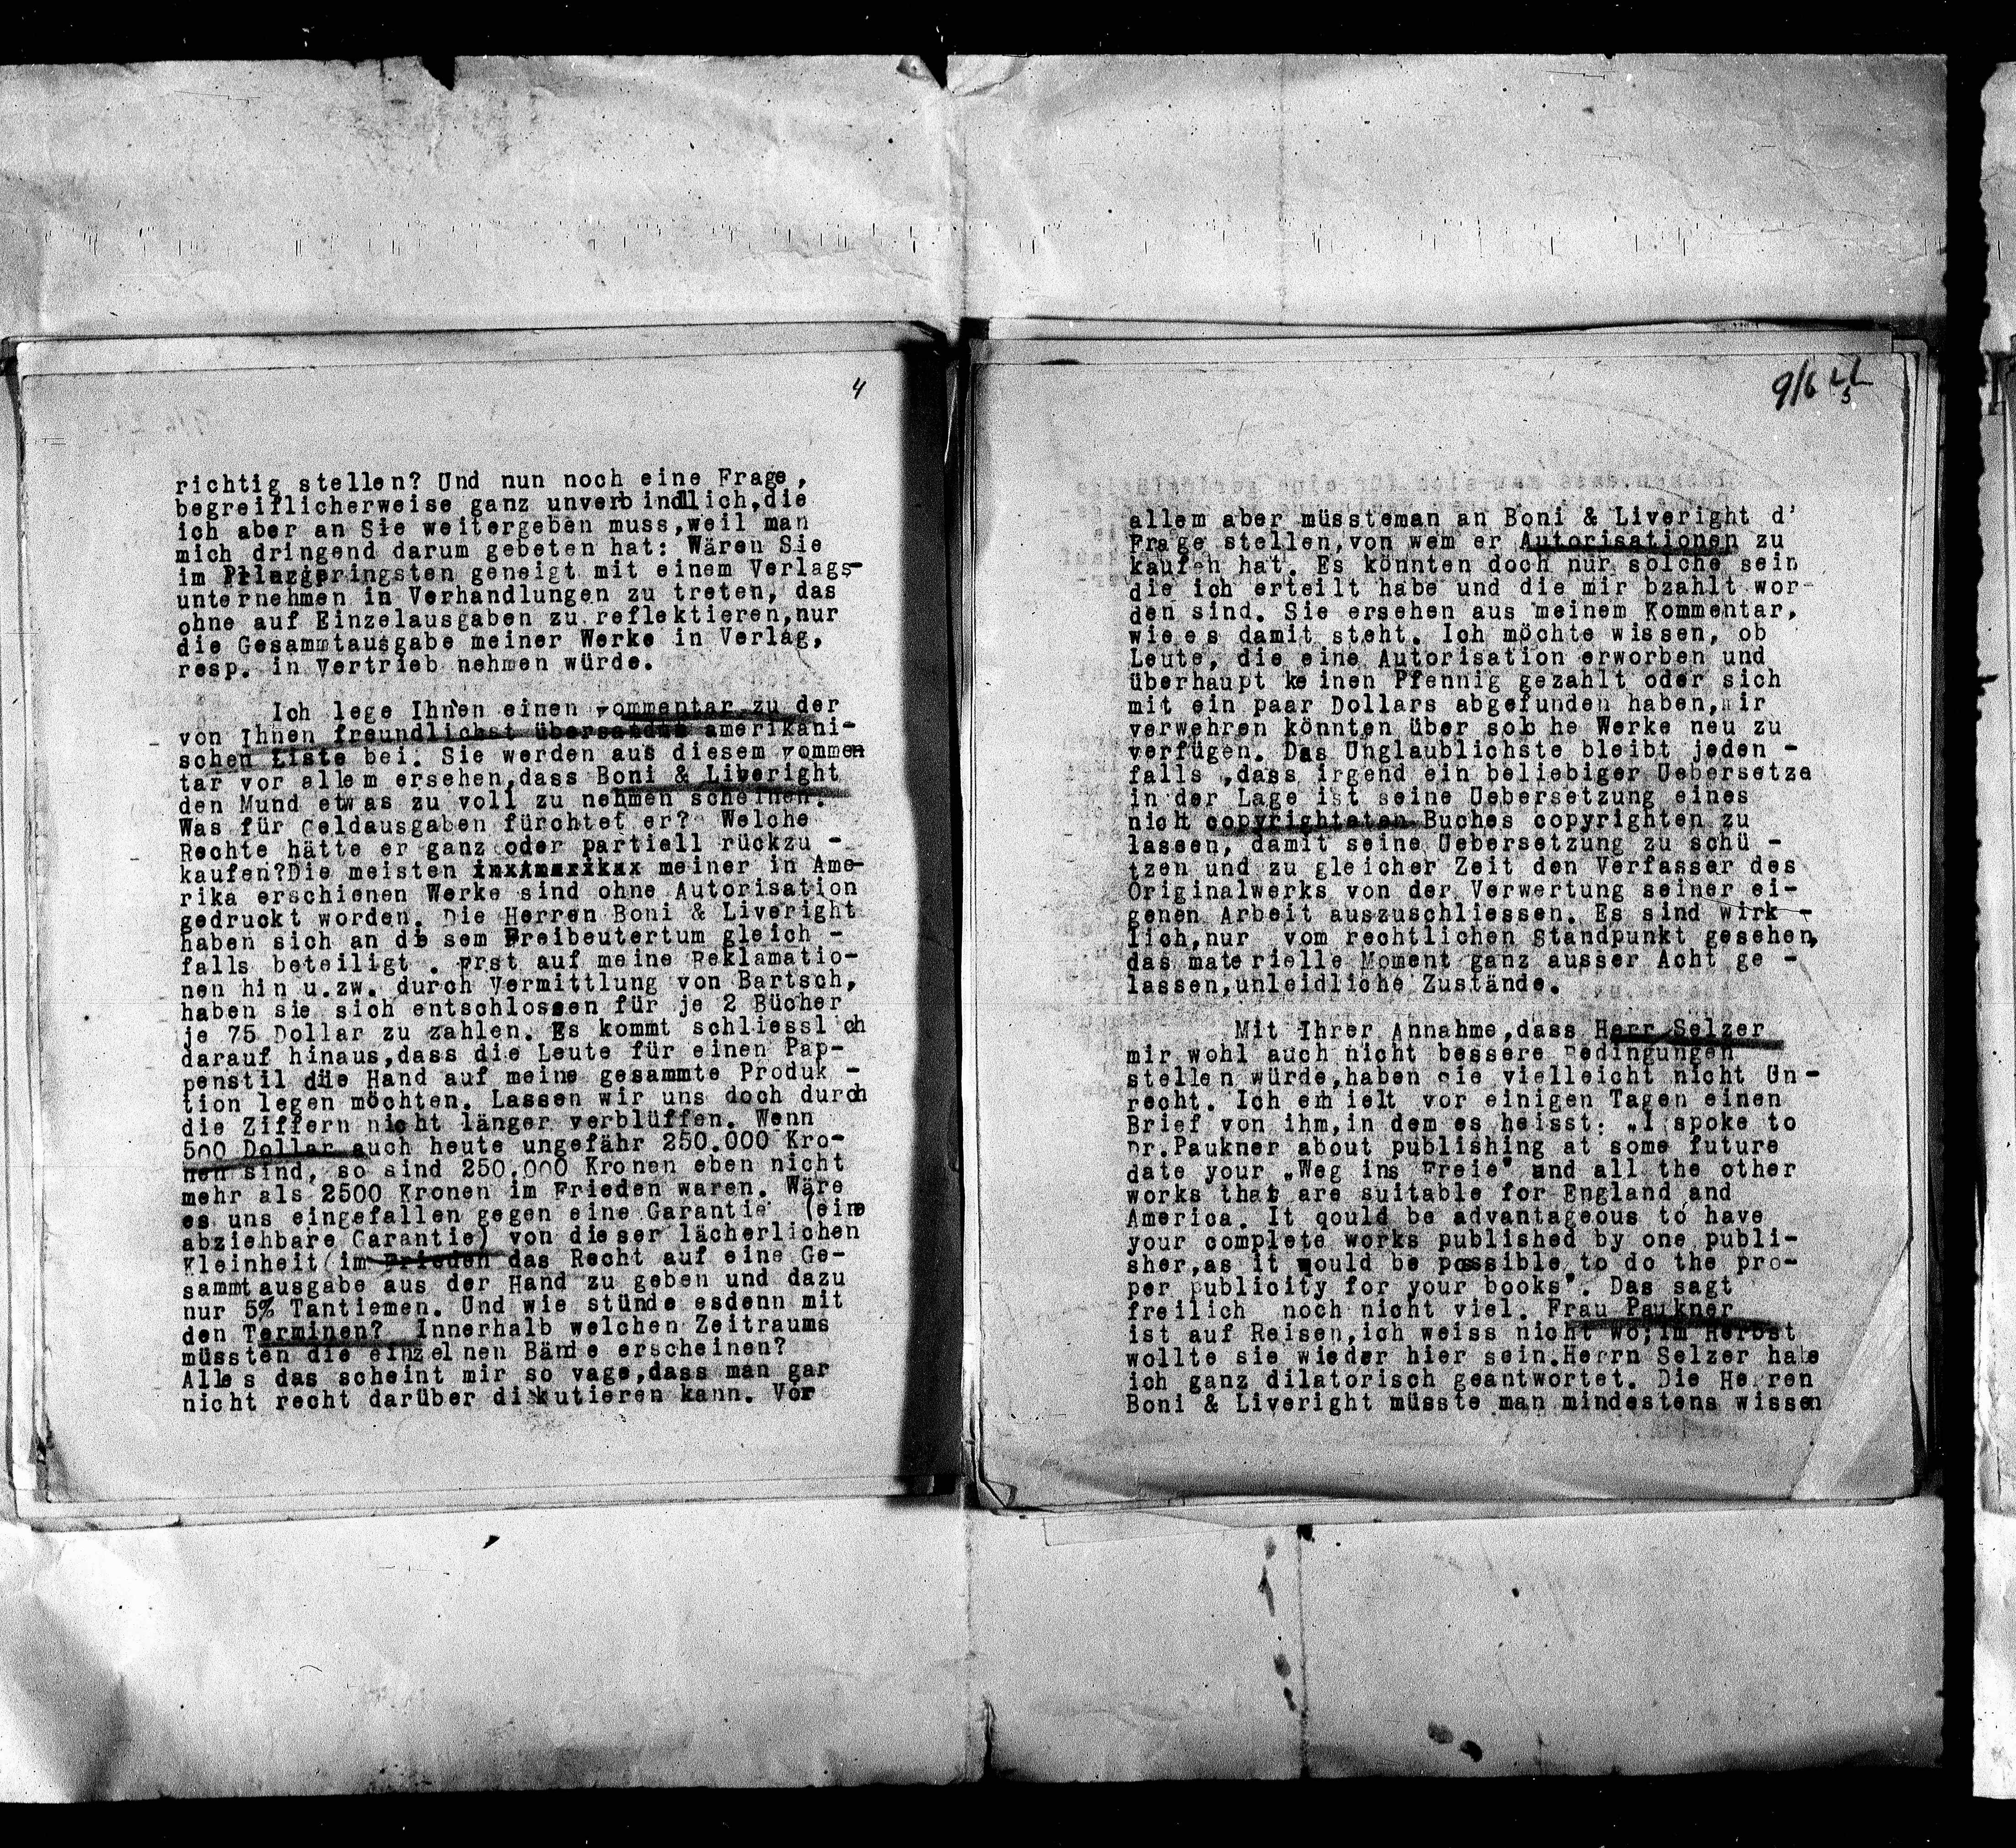 4
richtig stellen? Und nun noch eine Frage,
begreiflicherweise ganz unverbindllich,die
ich aber an Sie weitergeben muss,weil man
mich dringend darum gebeten hat: Wären Sie
im geringsten geneigt mit einem Verlags-
unternehmen in Verhandlungen zu treten, das
ohne auf Einzelausgaben zu reflektieren,nur
die Gesammtausgabe meiner Werke in Verlag,
resp. in Vertrieb nehmen würde.
Ich lege Ihnen einen Kommentar zu der
von Ihnen freundlichst übersandten amerikani-
schen Liste bei. Sie werden aus diesem Kommen
tar vor allem ersehen,dass Boni & Liveright
den Mund etwas zu voll zu nehmen scheinen.
Was für Geldausgaben fürchtet er? Welche
Rechte hätte er ganz oder partiell rückzu -
kaufen?Die meisten inxAmerikax meiner in Ame-
rika erschienen Werke sind ohne Autorisation
gedruckt worden. Die Herren Boni & Liveright
haben sich an die sem Freibeutertum gleich -
falls beteiligt . Erst auf meine Reklamatio-
nen hin u.zw. durch Vermittlung von Bartsch,
haben sie sich entschlossen für je 2 Bücher
je 75 Dollar zu zahlen. Es kommt schliessl ch
darauf hinaus,dass die Leute für einen Pap-
penstil die Hand auf meine gesammte Produk -
tion legen möchten. Lassen wir uns doch durch
die Ziffern nicht länger verblüffen. Wenn
500 Dollar auch heute ungefähr 250.000 Kro-
nen sind, so sind 250.000 Kronen eben nicht
mehr als 2500 Kronen im Frieden waren. Wäre
es uns eingefallen gegen eine Garantie (eine
abziehbare Garantie) von dieser lächerlichen
Kleinheit (im Frieden das Recht auf eine Ge-
sammtausgabe aus der Hand zu geben und dazu
nur 5% Tantiemen. Und wie stünde esdenn mit
den Terminen? Innerhalb welchen Zeitraums
müssten die einzelnen Bände erscheinen?
Alles das scheint mir so vage,dass man gar
nicht recht darüber diskutieren kann. Vor
9/6 22
5
allem aber müssteman an Boni & Liveright d'
Frage stellen,von wem er Autorisationen zu
kaufen hat. Es könnten doch nur solche sein
die ich erteilt habe und die mir bzahlt wor-
den sind. Sie ersehen aus meinem Kommentar,
wiees damit steht. Ich möchte wissen, ob
Leute, die eine Autorisation erworben und
überhaupt keinen Pfennig gezahlt oder sich
mit ein paar Dollars abgefunden haben,mir
verwehren könnten über solche Werke neu zu
verfügen. Das Unglaublichste bleibt jeden -
falls ,dass irgend ein beliebiger Uebersetze
in der Lage ist seine Uebersetzung eines
nicht copyrighteten Buches copyrighten zu
lassen, damit seine Uebersetzung zu schü -
tzen und zu gleicher Zeit den Verfasser des
Originalwerks von der Verwertung seiner ei-
genen Arbeit auszuschliessen. Es sind wirk -
lich,nur vom rechtlichen Standpunkt gesehen,
das materielle Moment ganz ausser Acht ge -
lassen,unleidliche Zustände.
Mit Ihrer Annahme,dass Herr Selzer
mir wohl auch nicht bessere Bedingungen
stellen würde,haben Sie vielleicht nicht Un-
recht. Ich erhielt vor einigen Tagen einen
Brief von ihm,in dem es heisst: „I spoke to
Dr.Paukner about publishing at some future
date your „Weg ins Freie" and all the other
works that are suitable for England and
America. It qould be advantageous to have
your complete works published by one publi-
sher,as it would be possible to do the pro-
per publicity for your books". Das sagt
freilich noch nicht viel. Frau Paukner
ist auf Reisen,ich weiss nicht wo,im Herbst
wollte sie wieder hier sein.Herrn Selzer habe
ich ganz dilatorisch geantwortet. Die Herren
Boni & Liveright müsste man mindestens wissen